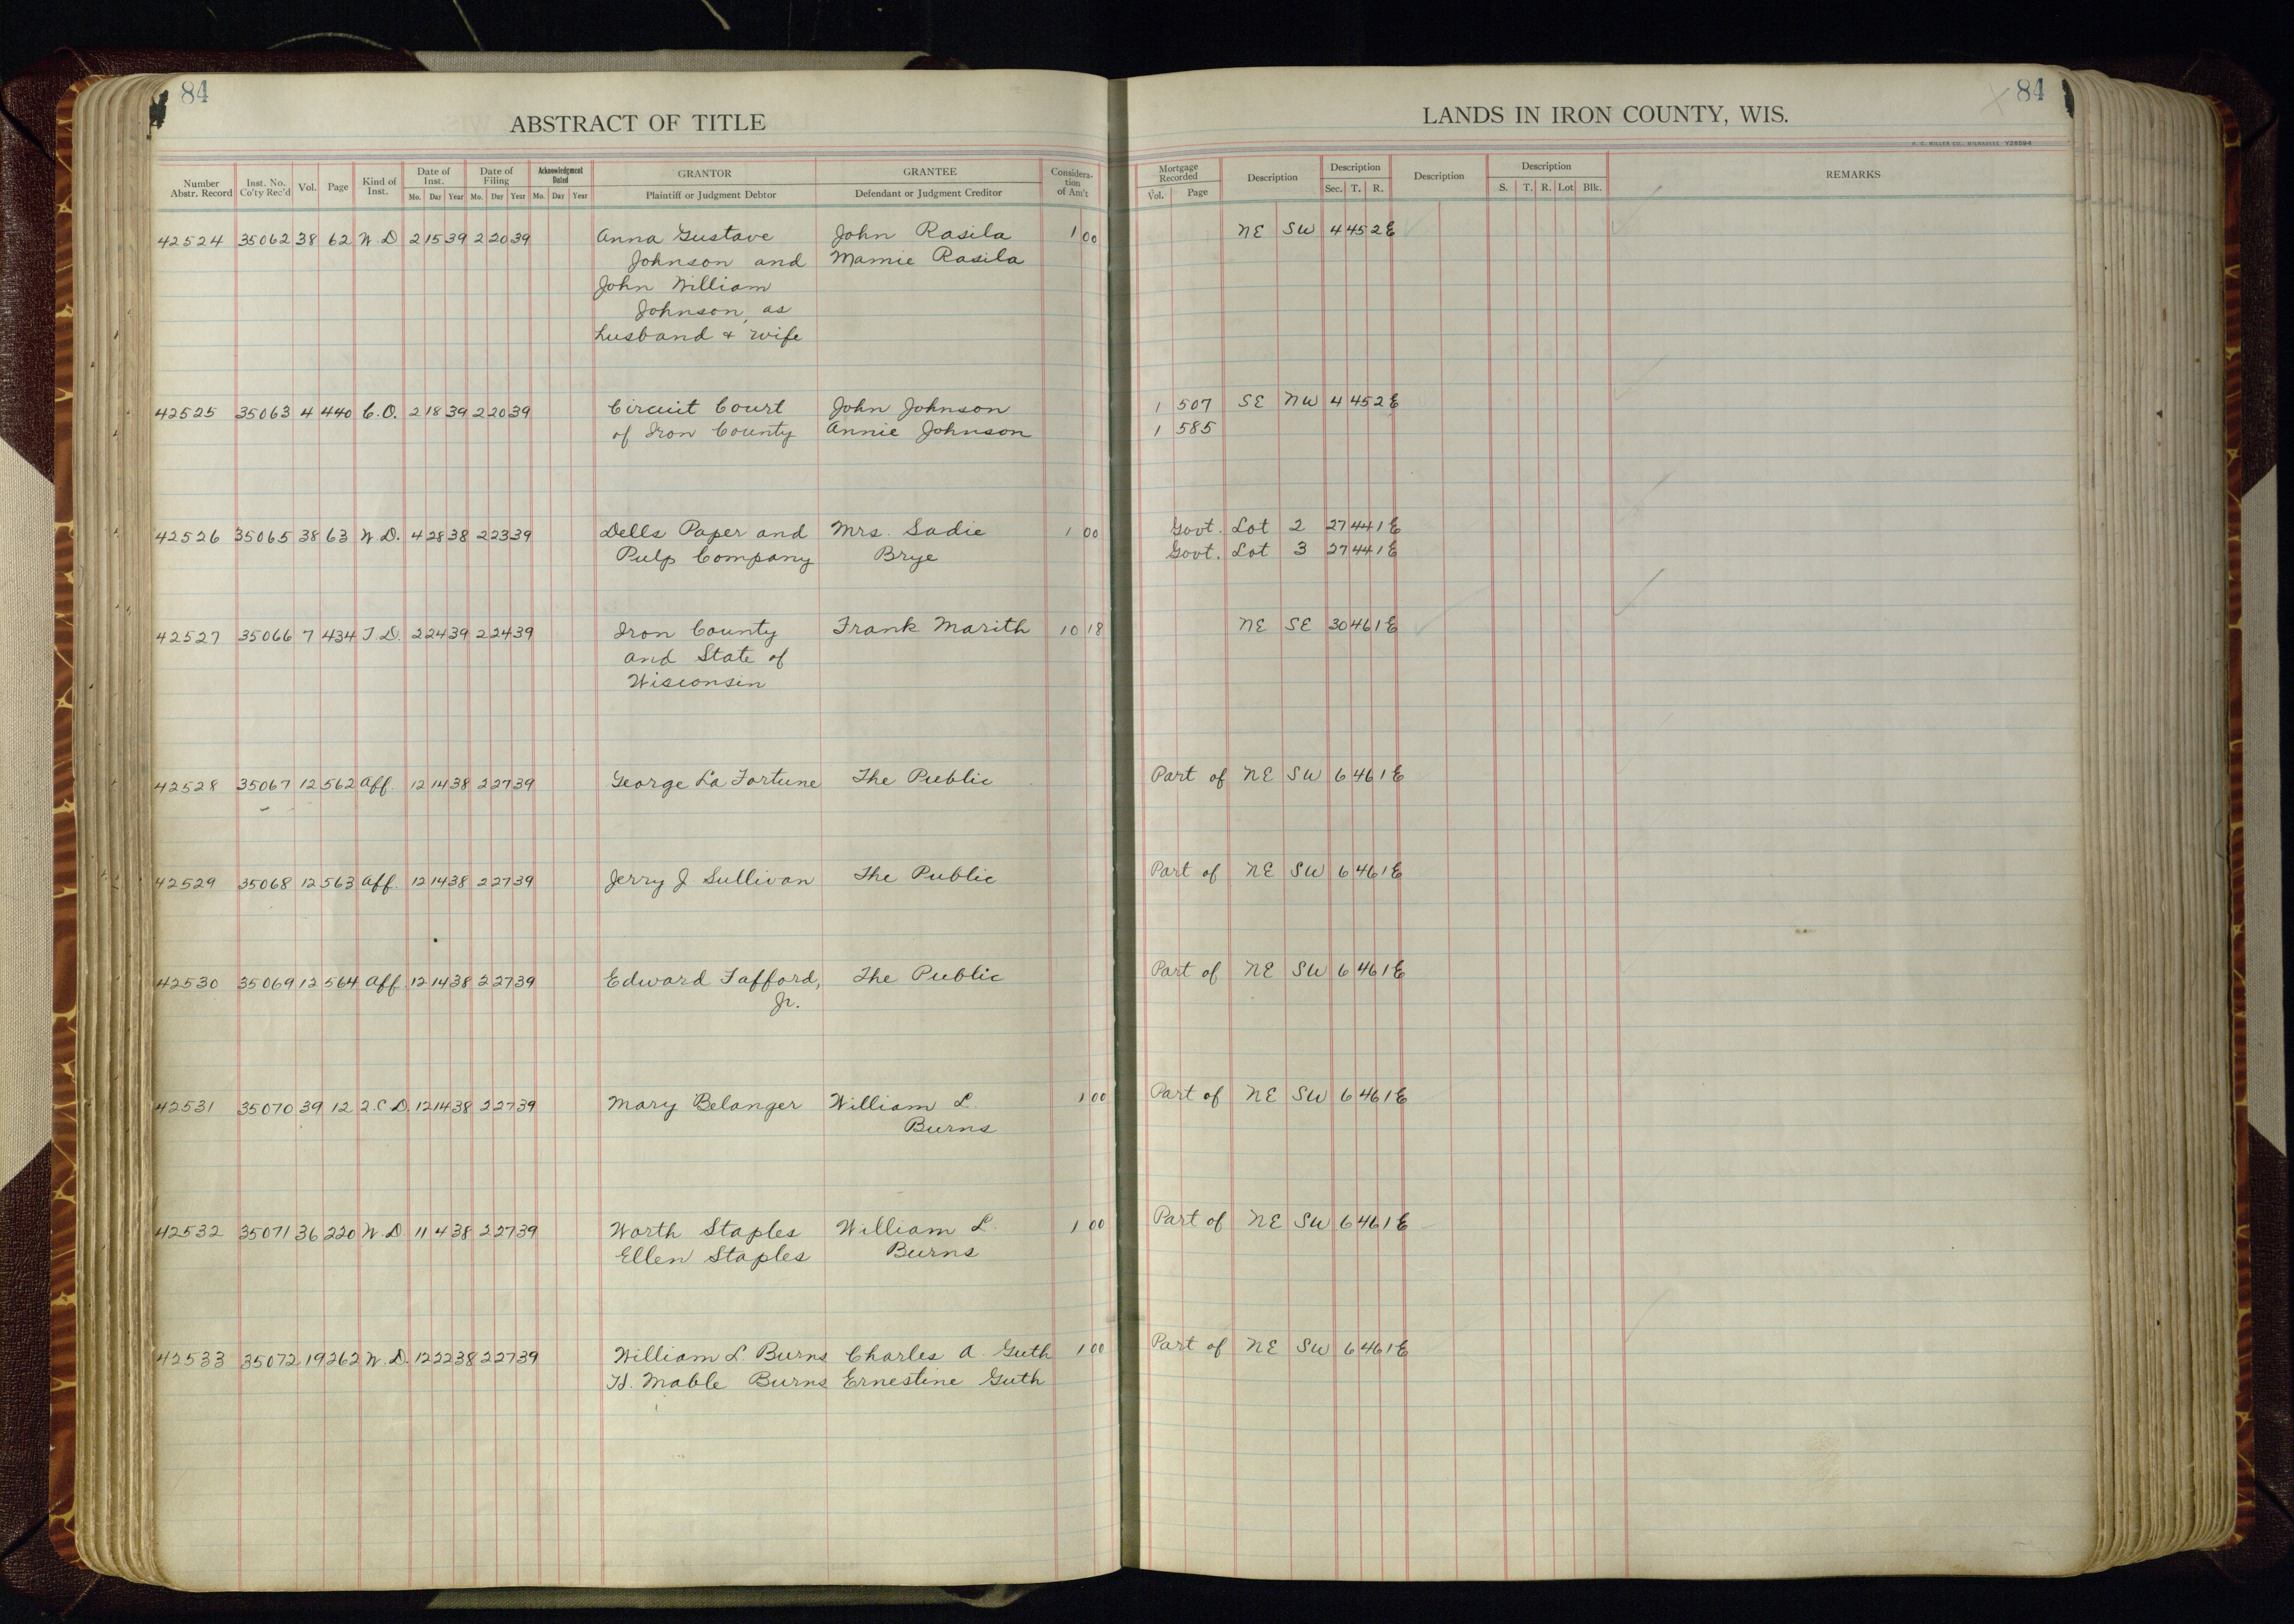 84
ABSTRACT OF TITLE
Number Abstr. Record Inst. No. Co'ty Rec'd Vol. Page Kind of Inst. Date of Inst. Mo. Day Year Date of Filing Mo. Day Year Acknowledgment Dated Mo. Day Year GRANTOR Plaintiff or Judgment Debtor GRANTEE Defendant or Judgment Creditor Considera- tion of Am't
42524 35062 38 62 W.D 2 15 39 2 20 39 Anna Gustave John Rasila 1 00
Johnson and Mamie Rasila
John William
Johnson, as
husband & wife
42525 35063 4 440 C.O. 2 18 39 2 20 39 Circuit Court John Johnson
of Iron County Annie Johnson
42526 35065 38 63 W.D. 4 28 38 2 23 39 Dells Paper and Mrs. Sadie 1 00
Pulp Company Brye
42527 35066 7 434 T.D. 2 24 39 2 24 39 Iron County Frank Marith 10 18
and State of
Wisconsin
42528 35067 12 562 Aff. 12 14 38 2 27 39 George La Fortune The Public
42529 35068 12 563 Aff. 12 14 38 2 27 39 Jerry J. Sullivan The Public
42530 35069 12 564 Aff 12 14 38 2 27 39 Edward Tafford, The Public
Jr.
42531 35070 39 12 2.C.D. 12 14 38 2 27 39 Mary Belanger William L. 1 00
Burns
42532 35071 36 220 W.D 11 4 38 2 27 39 Worth Staples William L. 1 00
Ellen Staples Burns
42533 35072 19 262 W.D. 12 22 38 2 27 39 William L Burns Charles A. Guth 1 00
H. Mable Burns Ernestine Guth
84
LANDS IN IRON COUNTY, WIS.
H. C. MILLER CO., MILWAUKEE Y28594
Mortgage Recorded Vol. Page Description Description Sec. T. R. Description Description S. T. R. Lot Blk. REMARKS
NE SW 4 45 2E
1 507 SE NW 4 45 2E
1 585
Govt. Lot 2 27 44 1E
Govt. Lot 3 27 44 1E
NE SE 30 46 1E
Part of NE SW 6 46 1E
Part of NE SW 6 46 1E
Part of NE SW 6 46 1E
Part of NE SW 6 46 1E
Part of NE SW 6 46 1E
Part of NE SW 6 46 1E